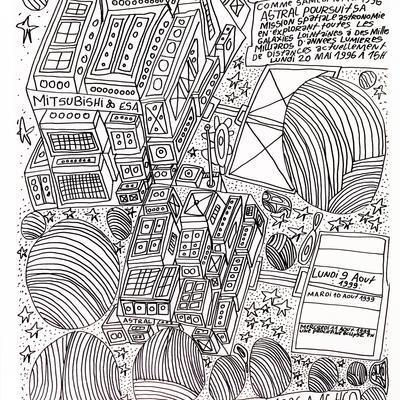 COMME SAMEDI 1996
ASTRAL POURSUIT SA
MISSION SPATIALE astronomie
en explorant toutes LES
GALAXIES Lointaines à Des Mille
MILLIARDS D'ANNÉES LUMIERES
DE Distances actuellement
LUNDI 20 MAI 1996 A 15H
MITSUBISHI & ESA
LUNDI 9 Aout
1999
MARDI 10 Aout 1999
MERCREDI 11 Aout 1999
une
ASTRAL